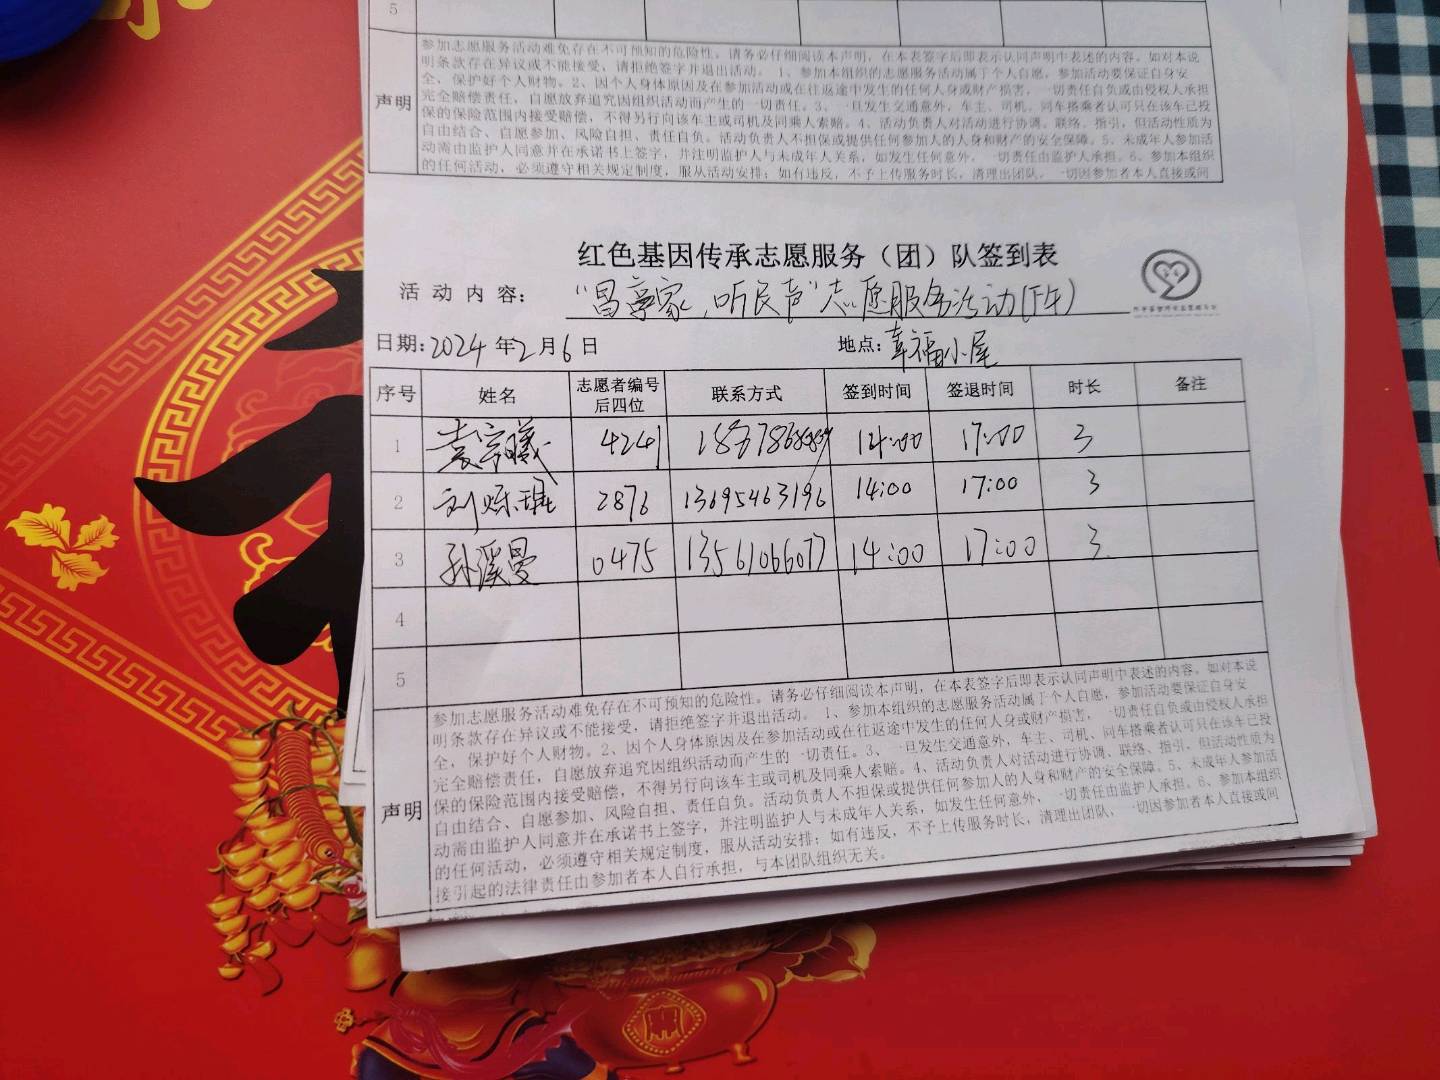 5
声明
参加志愿服务活动难免存在不可预知的危险性。请务必仔细阅读本声明，在本表签字后即表示认同声明中表述的内容。如对本说
明条款存在异议或不能接受，请拒绝签字并退出活动。 1、参加本组织的志愿服务活动属于个人自愿，参加活动要保证自身安
全，保护好个人财物。2、因个人身体原因及在参加活动或在往返途中发生的任何人身或财产损害，一切责任自负或由侵权人承担
完全赔偿责任，自愿放弃追究因组织活动而产生的一切责任。3、一旦发生交通意外，车主、司机、同车搭乘者认可只在该车已投
保的保险范围内接受赔偿，不得另行向该车主或司机及同乘人索赔。4、活动负责人对活动进行协调、联络、指引，但活动性质为
自由结合、自愿参加、风险自担、责任自负。活动负责人不担保或提供任何参加人的人身和财产的安全保障。5、未成年人参加活
动需由监护人同意并在承诺书上签字，并注明监护人与未成年人关系，如发生任何意外，一切责任由监护人承担。6、参加本组织
的任何活动，必须遵守相关规定制度，服从活动安排；如有违反，不予上传服务时长，清理出团队，一切因参加者本人直接或间
红色基因传承志愿服务（团）队签到表
活动内容： 家,听民声"志愿服务活动(下午)
日期:2024年2月6日 地点:幸福小屋
序号 姓名 志愿者编号后四位 联系方式 签到时间 签退时间 时长 备注
1 袁宗曦 4241 14:00 17:00 3
2 刘烁 2876 13695463196 14:00 17:00 3
3 孙溪曼 0475 13561066077 14:00 17:00 3
4
5
声明
参加志愿服务活动难免存在不可预知的危险性。请务必仔细阅读本声明，在本表签字后即表示认同声明中表述的内容。如对本说
明条款存在异议或不能接受，请拒绝签字并退出活动。 1、参加本组织的志愿服务活动属于个人自愿，参加活动要保证自身安
全，保护好个人财物。2、因个人身体原因及在参加活动或在往返途中发生的任何人身或财产损害，一切责任自负或由侵权人承担
完全赔偿责任，自愿放弃追究因组织活动而产生的一切责任。3、一旦发生交通意外，车主、司机、同车搭乘者认可只在该车已投
保的保险范围内接受赔偿，不得另行向该车主或司机及同乘人索赔。4、活动负责人对活动进行协调、联络、指引，但活动性质为
自由结合、自愿参加、风险自担、责任自负。活动负责人不担保或提供任何参加人的人身和财产的安全保障。5、未成年人参加活
动需由监护人同意并在承诺书上签字，并注明监护人与未成年人关系，如发生任何意外，一切责任由监护人承担。6、参加本组织
的任何活动，必须遵守相关规定制度，服从活动安排；如有违反，不予上传服务时长，清理出团队，一切因参加者本人直接或间
接引起的法律责任由参加者本人自行承担，与本团队组织无关。